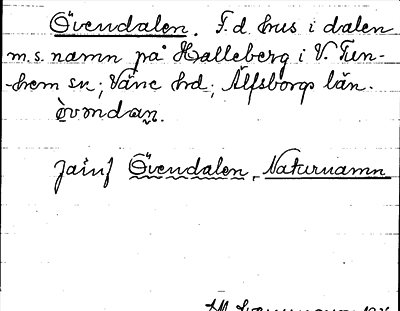 Övendalen. F.d. hus i dalen
m.s. namn på Halleberg i V. Tun-
-hem sn; Väne hd; Älfsborgs län.
òvəndaɳ.
Jainf Övendalen, Naturnamn